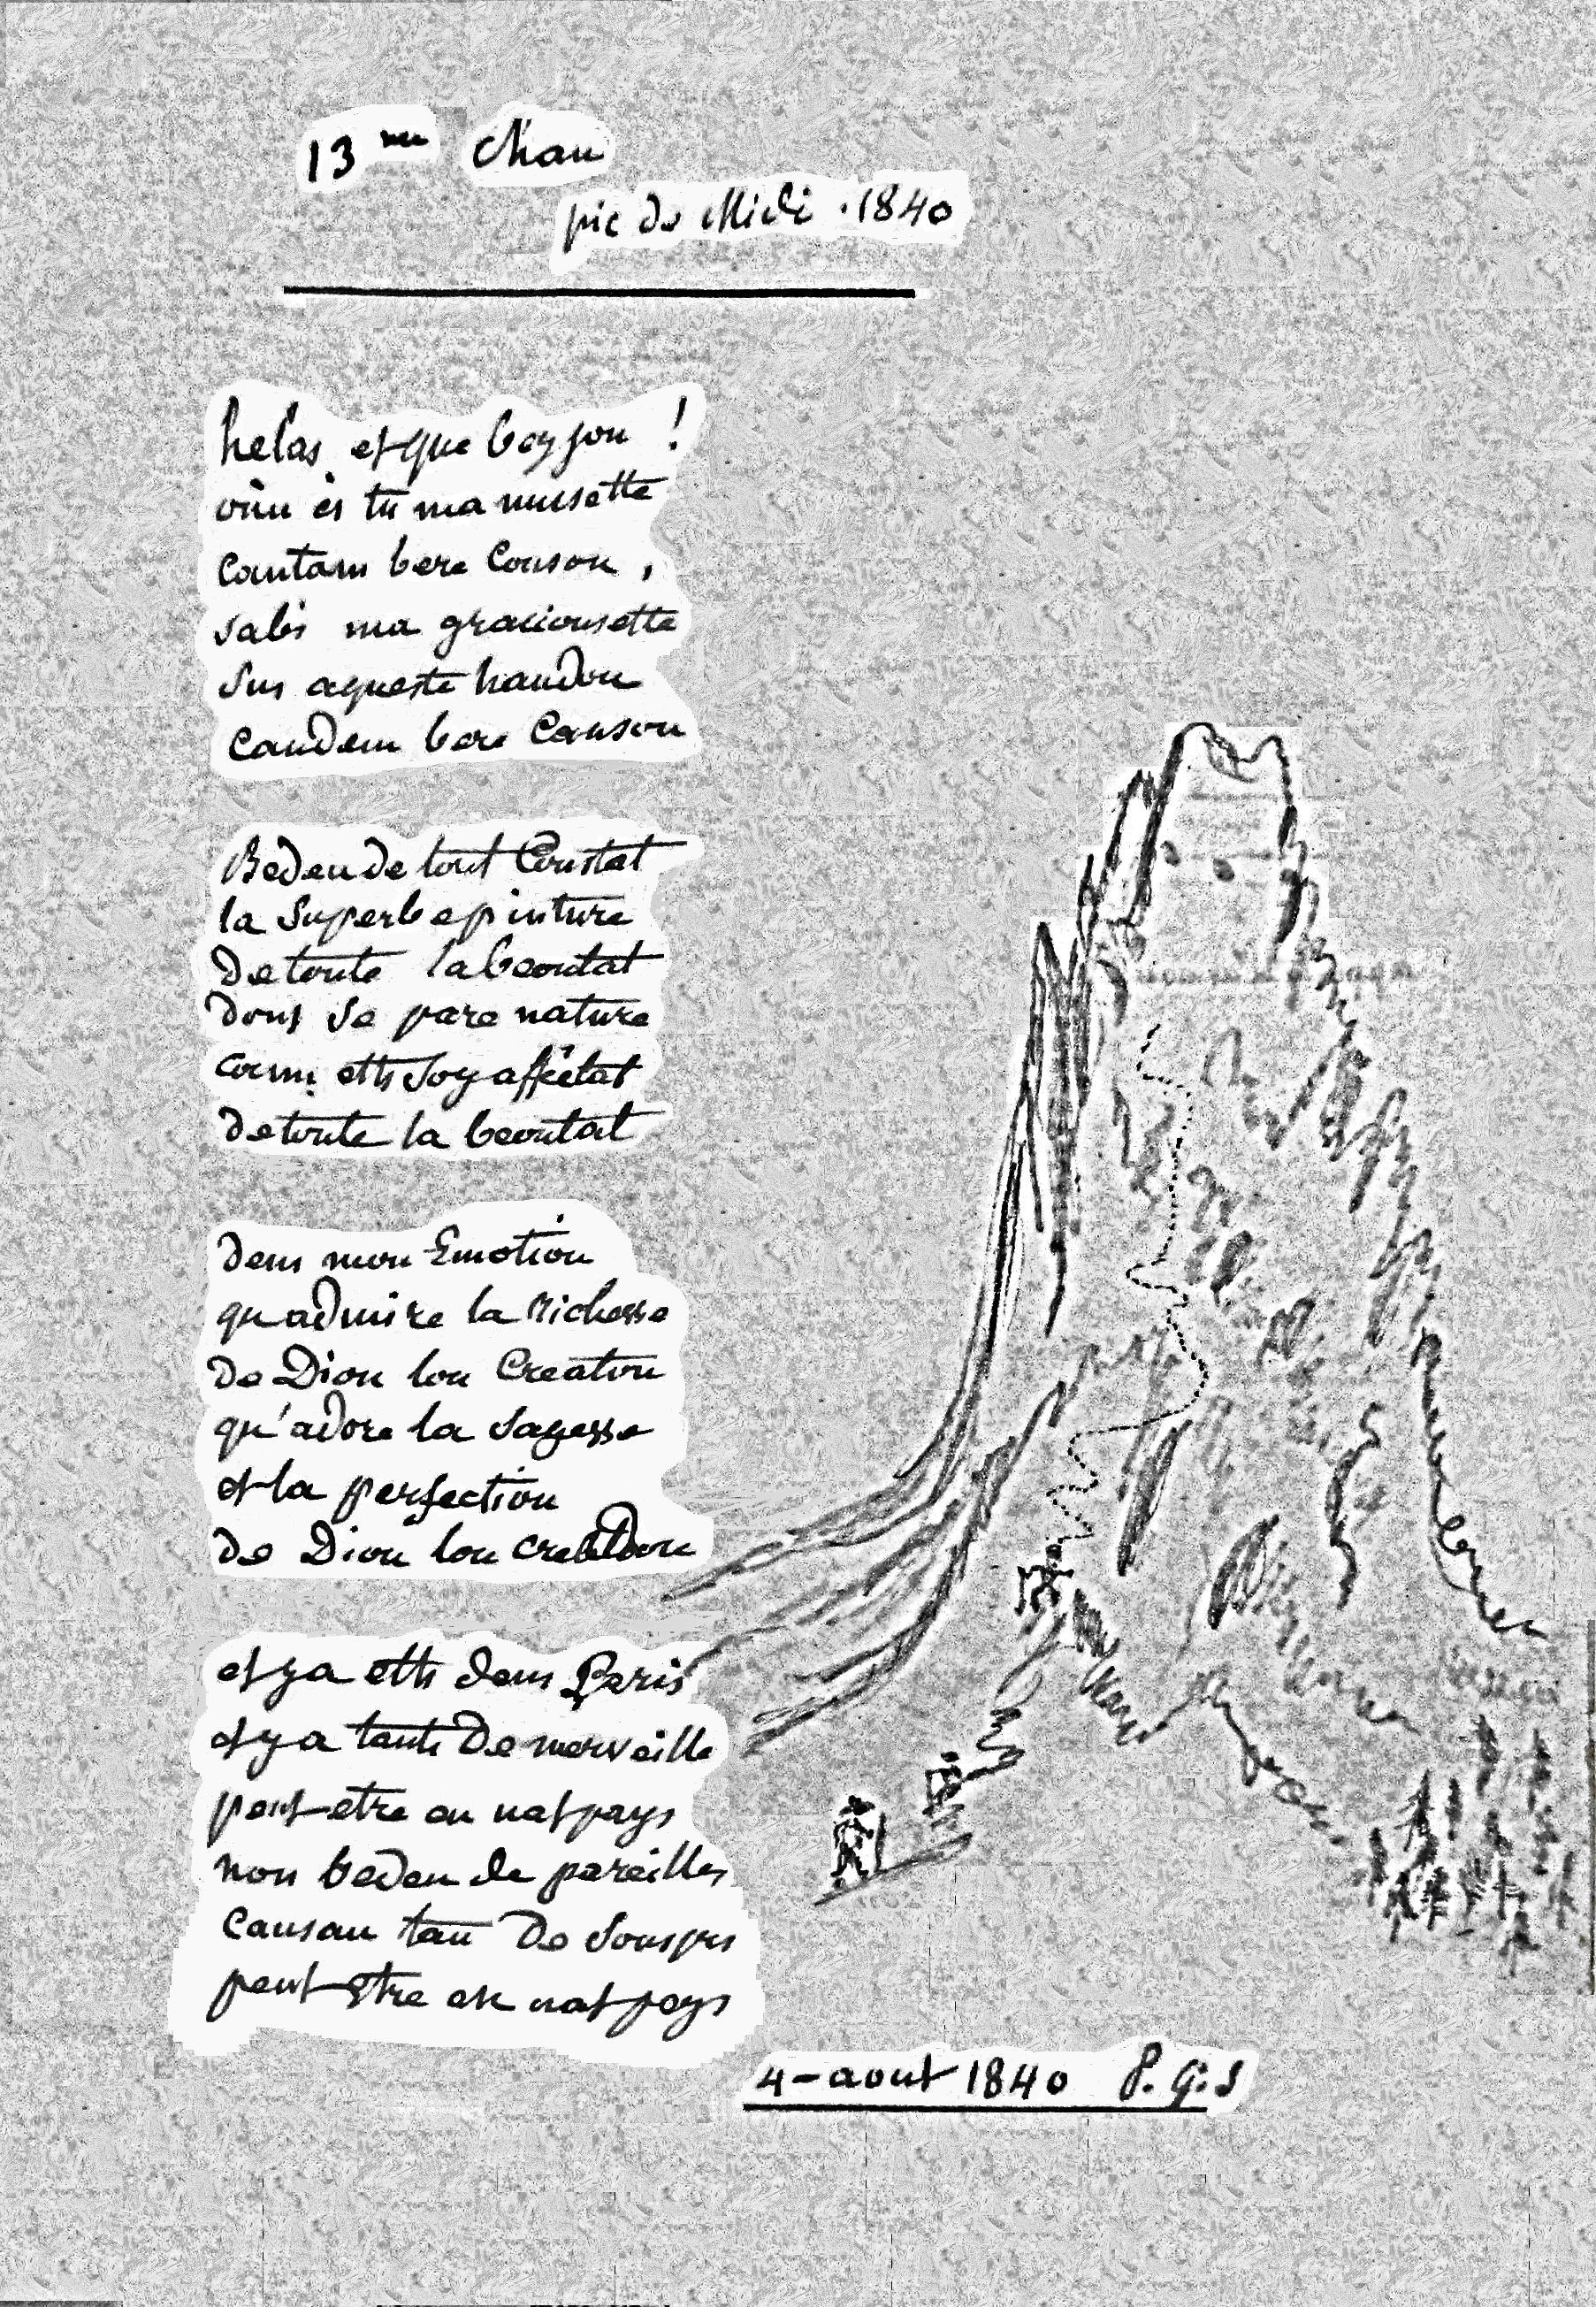 13 me Chan
pic de Midi . 1840
helas et que bey jou !
oùn es tu ma musette
Cantam bere Consou ,
Sabi ma graciousette
Sus aqueste haudou
Candem bere Cansou
Bedeu de tout Coustat
la Superbe pinture
De toute la beoutat
Dont Se pare nature
coumi ett Soy affétat
de toute la beoutat
Dens mon Emotiou
qu admire la Richesse
De Diou lou Creatou
qu'adore la Sagesse
et la perfectiou
de Diou lou creatou
et y a ett dens Paris
et y a tante De merveille
peut-etre en nat pays
non beden de pareilles
Causau tan De Souspis
peut-Etre en nat pays
4-aout 1840 P. G. S